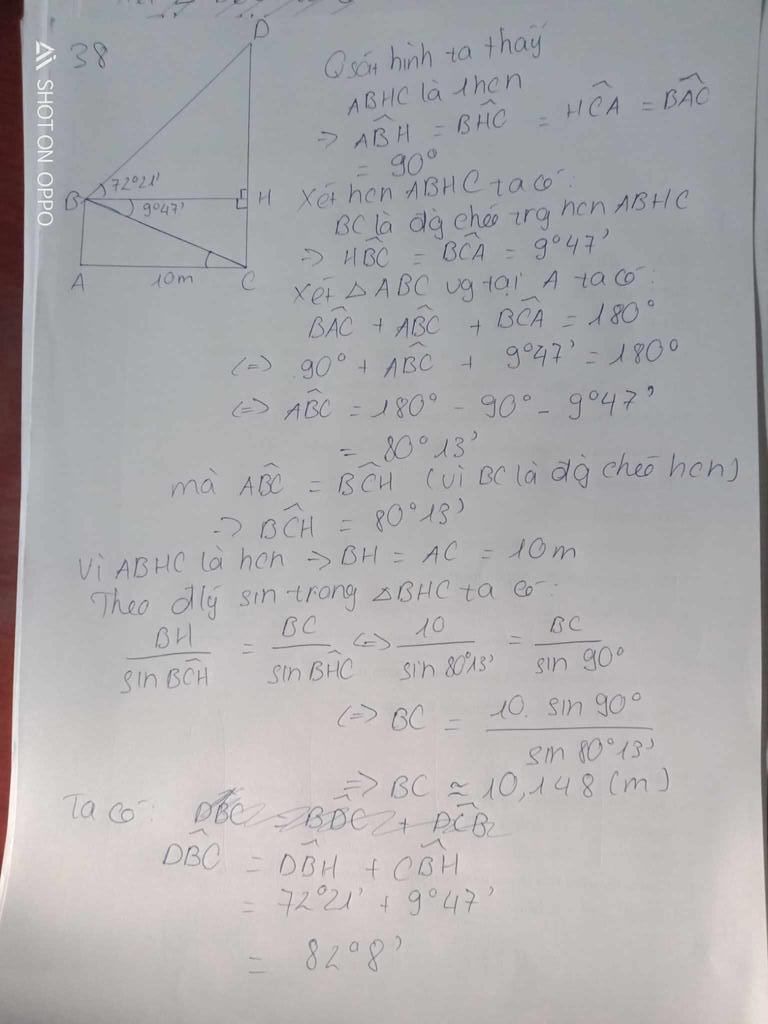 38
D
Qsát hình ta thấy
ABHC là hcn
=> ABH = BHC = HCA = BAC
= 90°
72°21'
B
H
9°47'
A
10m
C
Xét hcn ABHC ta có:
BC là đg chéo trg hcn ABHC
=> HBC = BCA = 9°47'
Xét △ABC vg tại A ta có:
BAC + ABC + BCA = 180°
<=> 90° + ABC + 9°47' = 180°
<=> ABC = 180° - 90° - 9°47'
= 80°13'
mà ABC = BCH (vì BC là đg chéo hcn)
=> BCH = 80°13'
Vì ABHC là hcn => BH = AC = 10m
Theo đlý sin trong △BHC ta có:
BH / sin BCH = BC / sin BHC <=> 10 / sin 80°13' = BC / sin 90°
<=> BC = 10. sin 90° / sin 80°13'
=> BC ≈ 10,148 (m)
Ta có: DBC = BDC + DCB
DBC = DBH + CBH
= 72°21' + 9°47'
= 82°8'
SHOT ON OPPO